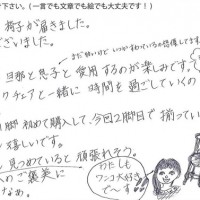 下さい。(一言でも文章でも絵でも大丈夫です！)
椅子が届きました。
ございました。
まだ届いたけど いつかすわっているのを想像してます。
旦那と息子と使用するのが楽しみです。
クチェアと一緒に時間を過ごしていくの
脚初めて購入して、今回2脚目で揃ってい
嬉しいです。
見つめていると頑張れそう。
へのご褒美に
なぁ。
わたしも
ワンコ大好き
で〜す